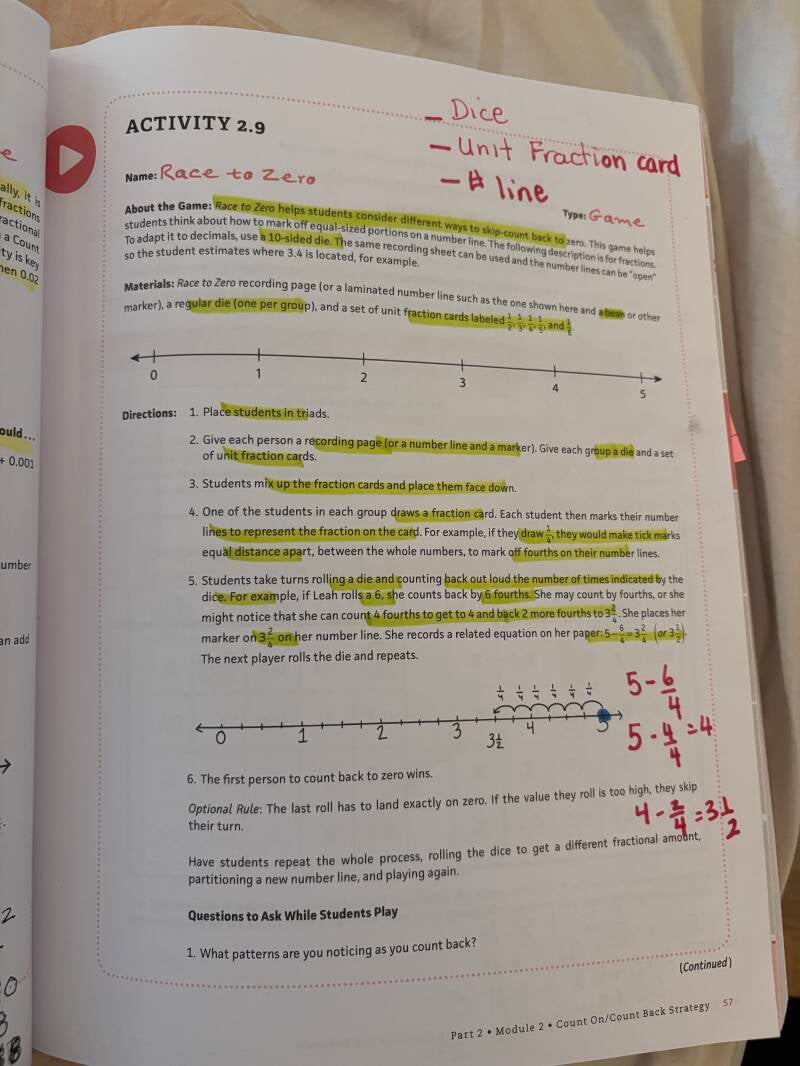 ACTIVITY 2.9
- Dice
- Unit Fraction card
- # line
Name: Race to Zero
Type: Game
About the Game: Race to Zero helps students consider different ways to skip-count back to zero. This game helps
students think about how to mark off equal-sized portions on a number line. The following description is for fractions.
To adapt it to decimals, use a 10-sided die. The same recording sheet can be used and the number lines can be "open"
so the student estimates where 3.4 is located, for example.
Materials: Race to Zero recording page (or a laminated number line such as the one shown here and a bean or other
marker), a regular die (one per group), and a set of unit fraction cards labeled 1/2, 1/3, 1/4, 1/5, and 1/6.
0 1 2 3 4 5
Directions: 1. Place students in triads.
2. Give each person a recording page (or a number line and a marker). Give each group a die and a set
of unit fraction cards.
3. Students mix up the fraction cards and place them face down.
4. One of the students in each group draws a fraction card. Each student then marks their number
lines to represent the fraction on the card. For example, if they draw 1/4, they would make tick marks
equal distance apart, between the whole numbers, to mark off fourths on their number lines.
5. Students take turns rolling a die and counting back out loud the number of times indicated by the
dice. For example, if Leah rolls a 6, she counts back by 6 fourths. She may count by fourths, or she
might notice that she can count 4 fourths to get to 4 and back 2 more fourths to 3 2/4. She places her
marker on 3 2/4 on her number line. She records a related equation on her paper: 5 - 6/4 = 3 2/4 (or 3 1/2).
The next player rolls the die and repeats.
1/4 1/4 1/4 1/4 1/4 1/4
0 1 2 3 3 1/2 4 5
5 - 6/4
5 - 4/4 = 4
4 - 2/4 = 3 1/2
6. The first person to count back to zero wins.
Optional Rule: The last roll has to land exactly on zero. If the value they roll is too high, they skip
their turn.
Have students repeat the whole process, rolling the dice to get a different fractional amount,
partitioning a new number line, and playing again.
Questions to Ask While Students Play
1. What patterns are you noticing as you count back?
(Continued)
Part 2 • Module 2 • Count On/Count Back Strategy 57
e
ally, it is
fractions
ractional
a Count
ty is key
hen 0.02
ould...
+ 0.001
umber
an add